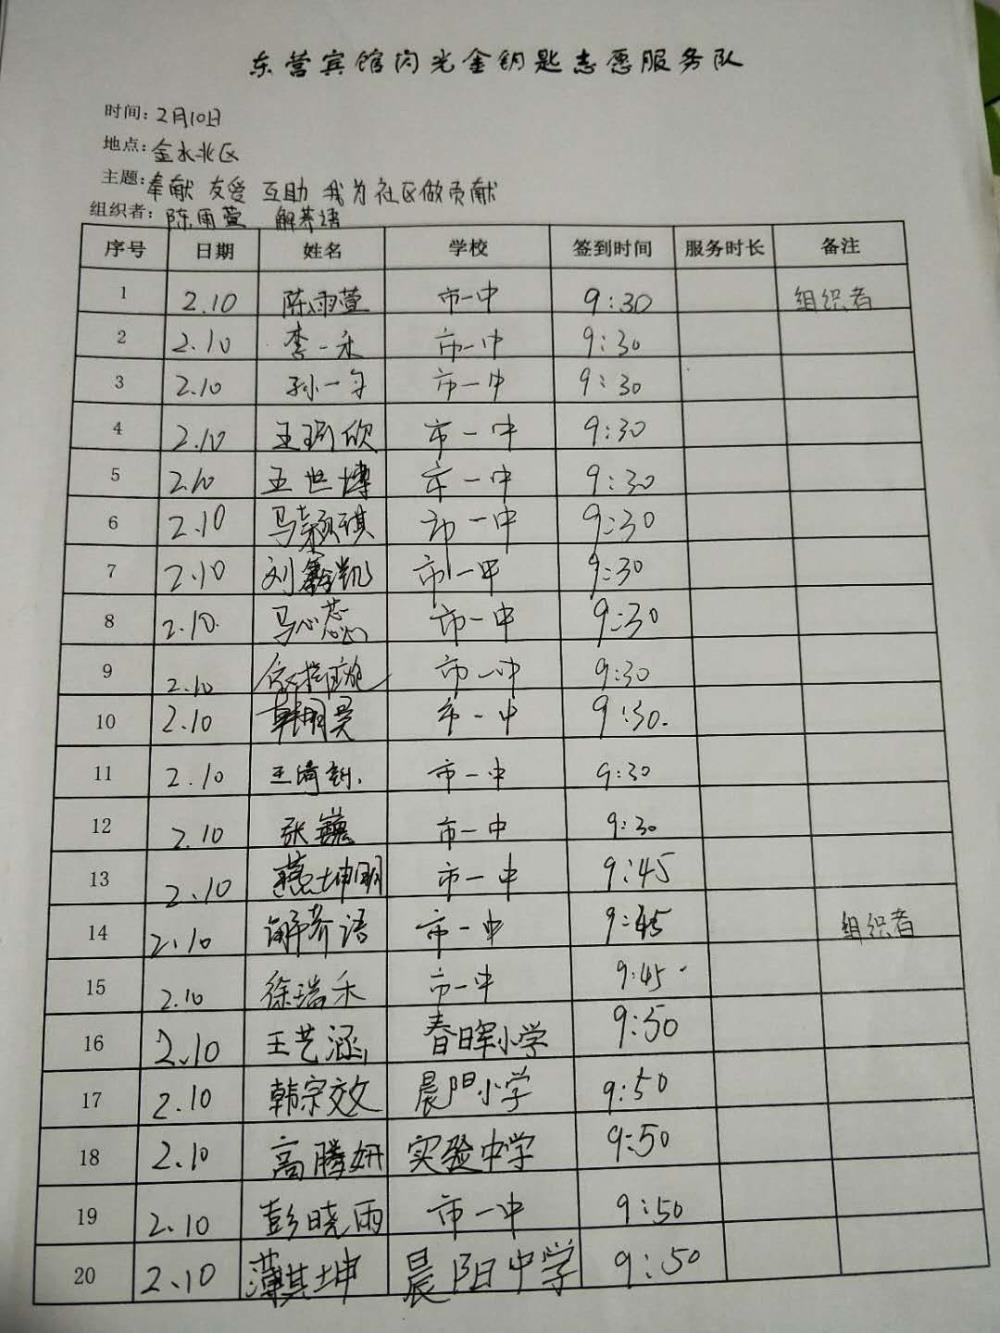 东营宾馆闪光金钥匙志愿服务队
时间：2月10日
地点：金水北区
主题：奉献 友爱 互助 我为社区做贡献
组织者：陈雨萱 解荞语
序号 日期 姓名 学校 签到时间 服务时长 备注
1 2.10 陈雨萱 市一中 9:30 组织者
2 2.10 李一禾 市一中 9:30
3 2.10 孙一 市一中 9:30
4 2.10 王 欣 市一中 9:30
5 2.10 王世博 市一中 9:30
6 2.10 马颖琪 市一中 9:30
7 2.10 刘鑫凯 市一中 9:30
8 2.10. 马心蕊 市一中 9:30
9 2.10 市一中 9:30
10 2.10 韩明昊 市一中 9:30.
11 2.10 王 市一中 9:30
12 2.10 张 市一中 9:30
13 2.10 坤明 市一中 9:45
14 2.10 解荞语 市一中 9:45 组织者
15 2.10 徐瑞禾 市一中 9:45
16 2.10 王艺涵 春晖小学 9:50
17 2.10 韩宗效 晨阳小学 9:50
18 2.10 高腾妍 实验中学 9:50
19 2.10 彭晓雨 市一中 9:50
20 2.10 薄其坤 晨阳中学 9:50